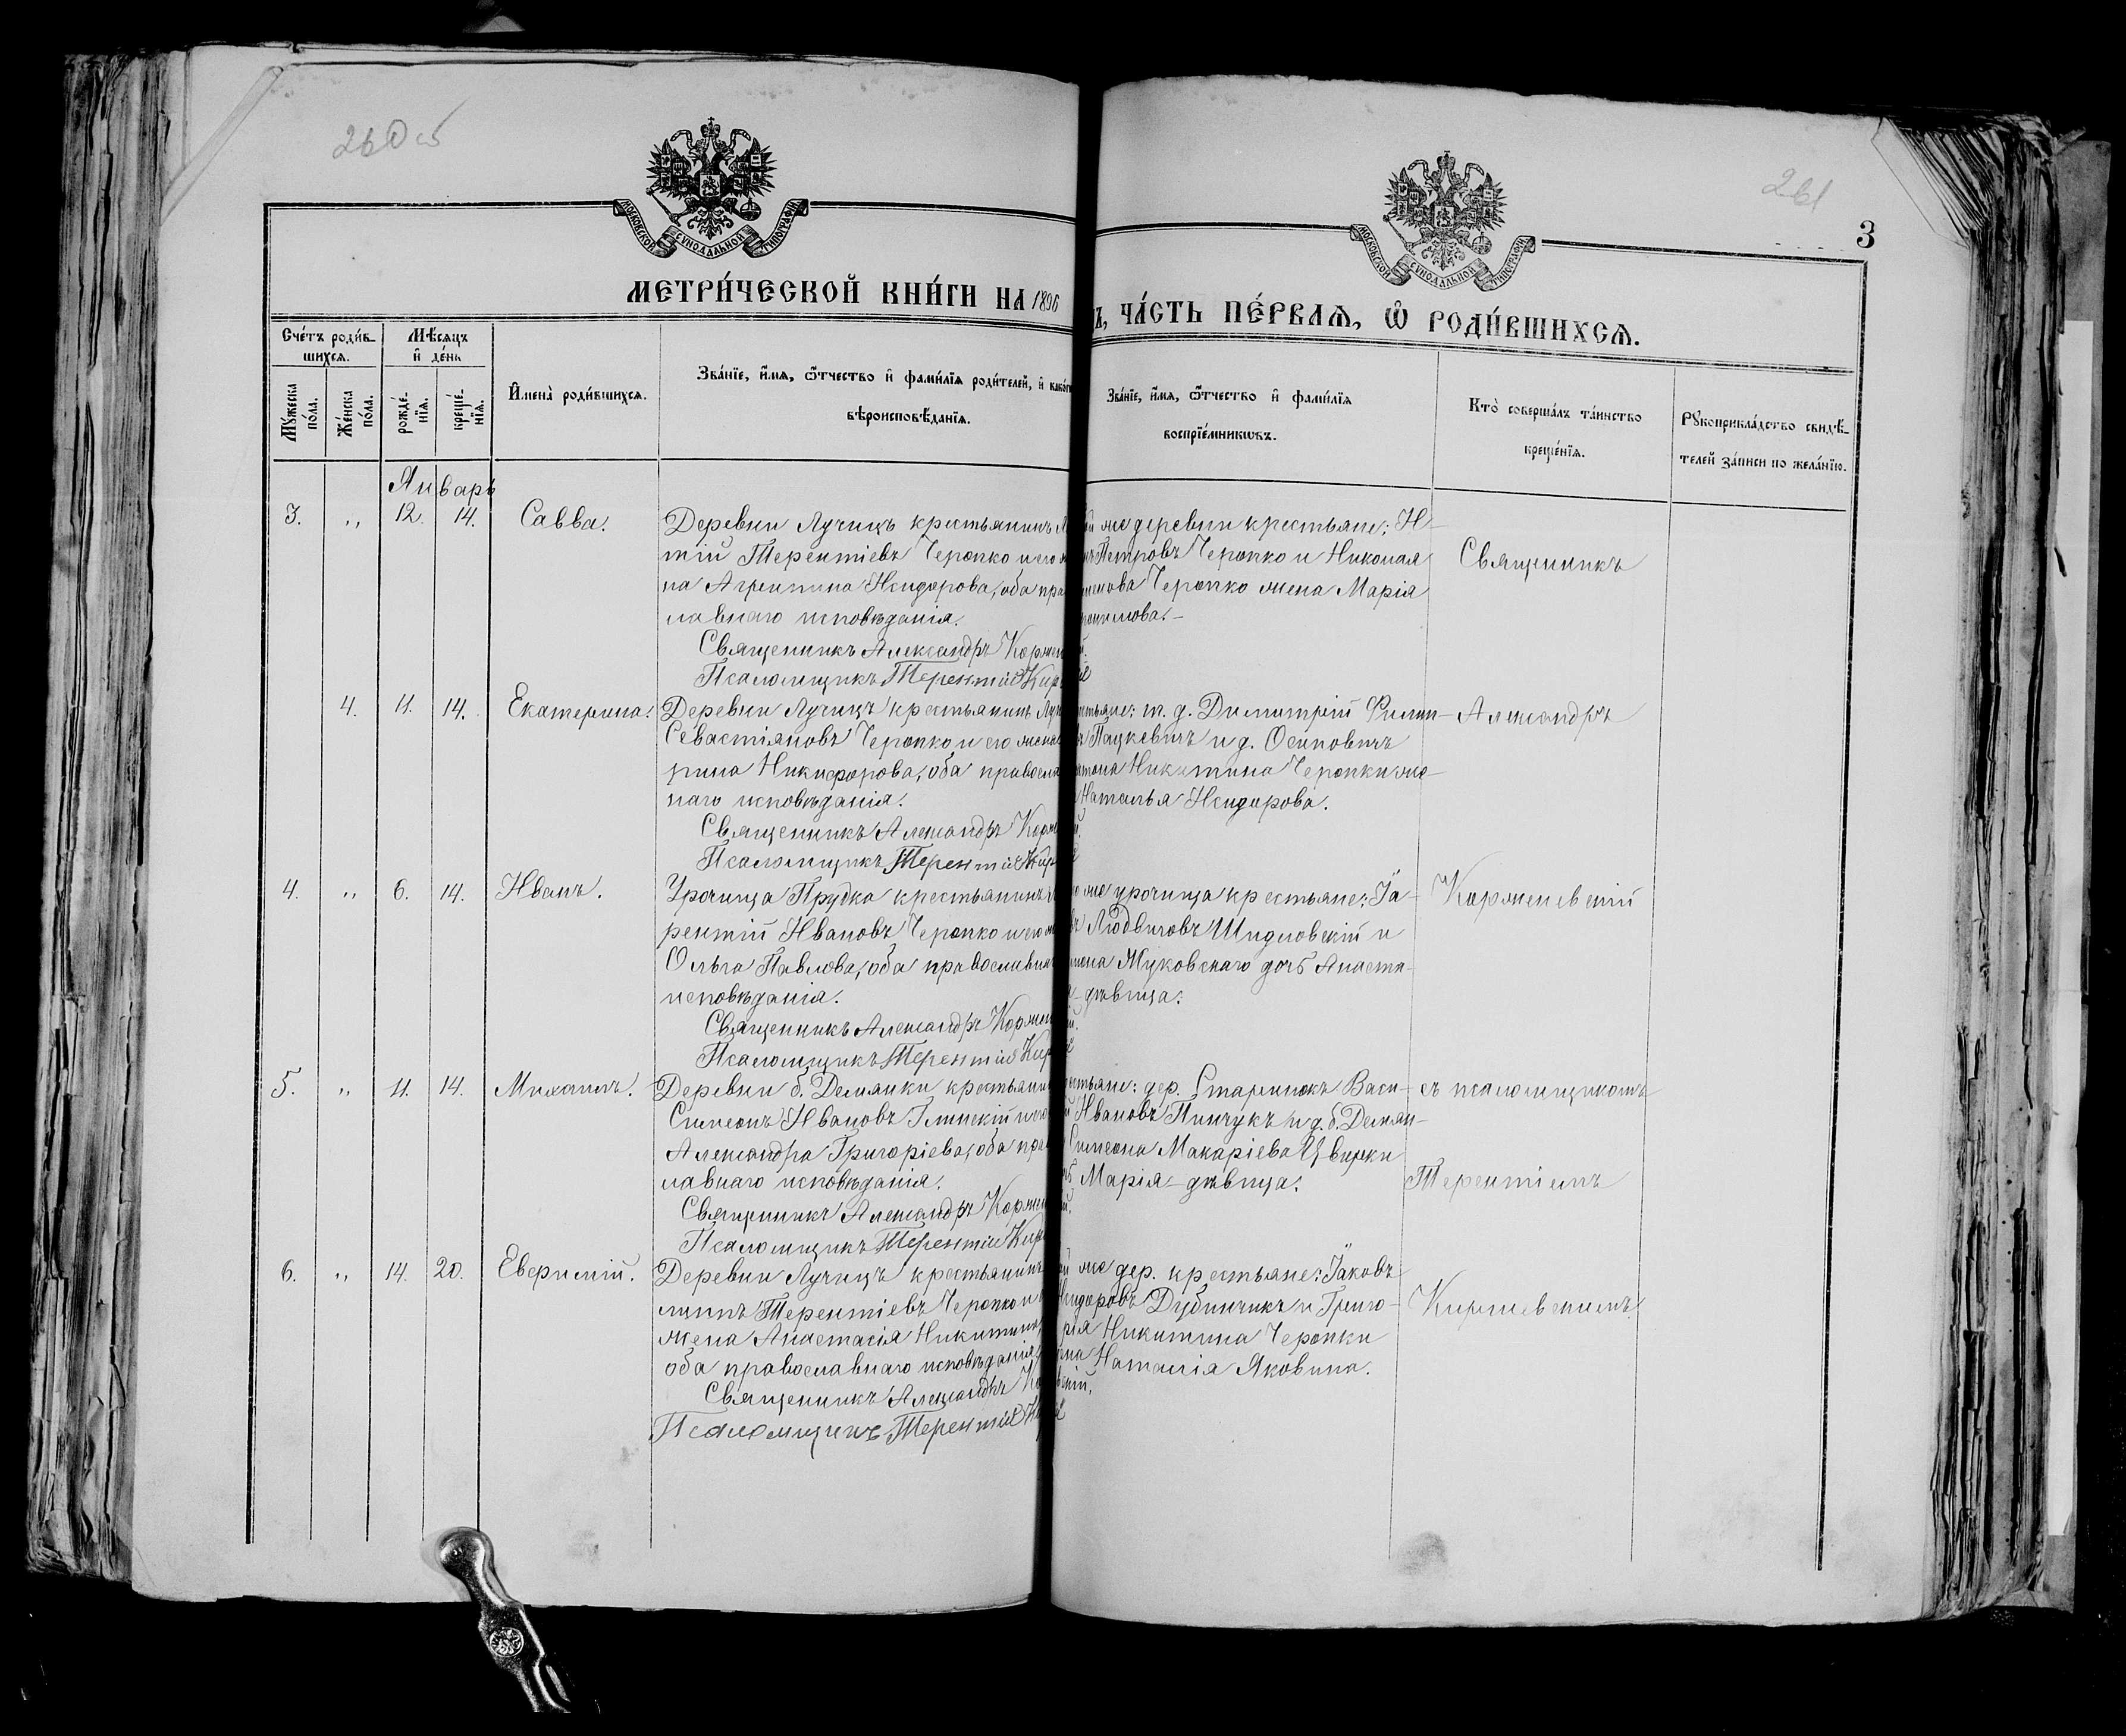 260 об
261
3
МОСКОВСКОЙ СУНОДАЛЬНОЙ ТИПОГРАФІИ
МОСКОВСКОЙ СУНОДАЛЬНОЙ ТИПОГРАФІИ
МЕТРИ́ЧЕСКОЙ КНИ́ГИ НА 1896
Ъ, ЧА́СТЬ ПЕ́РВАѦ, Ѡ РОДИ́ВШИХСѦ.
Сче́тъ роди́в-
шихсѧ.
Мѣ́сѧцъ
и҆ де́нь
Мꙋ́жеска по́ла.
Же́нска по́ла.
рожде́-
нїѧ.
креще́-
нїѧ.
И҆мена̀ роди́вшихсѧ.
Зва́нїе, и҆́мѧ, ѻ҆́тчество и҆ фами́лїѧ роди́телей, и҆ како́г
вѣроисповѣ́данїѧ.
Зва́нїе, и҆́мѧ, ѻ҆́тчество и҆ фами́лїѧ
воспрїе́мникѡвъ.
Кто̀ соверша́лъ та́инство
креще́нїѧ.
Рꙋкоприкла́дство свидѣ́-
телей за́писи по жела́нїю.
Январь
3. „ 12. 14. Савва.
Деревни Лучицъ крестьянинъ
тій Терентіевъ Черопко и его
на Агрипина Исидорова, оба пра
лавнаго исповѣданія.
Священникъ Александръ Корже
Псаломщикъ Терентій Кир
же деревни крестьяне: И-
Петровъ Черопко и Николая
Черопко жена Марія
4. 11. 14. Екатерина.
Деревни Лучицъ крестьянинъ
Севастіяновъ Черопко и его жена
рина Никифорова, оба правосла
наго исповѣданія.
Священникъ Александръ Корже
Псаломщикъ Терентій Кир
стьяне: т. д. Димитрій Филип-
Пацкевичъ и д. Осиповичъ
Никитина Черопки же-
Наталья Исидорова.
4. „ 6. 14. Иванъ.
Урочища Прудка крестьянинъ
рентій Ивановъ Черопко и его
Ольга Павлова, оба православна
исповѣданія.
Священникъ Александръ Корже
Псаломщикъ Терентій Кир
же урочища крестьяне: Іа-
Людвиговъ Шидловскій и
Жуковскаго дочь Анаста-
дѣвица.
5. „ 11. 14. Михаилъ.
Деревни б. Демянки крестьянин
Симеонъ Ивановъ Глинскій и его
Александра Григоріева, оба пра
лавнаго исповѣданія.
Священникъ Александръ Корже
Псаломщикъ Терентій Кир
стьяне: дер. Старинокъ Васи-
Ивановъ Пинчукъ и д. б. Демян-
Симеона Макаріева Цвирки
Марія дѣвица.
6. „ 14. 20. Еверилій.
Деревни Лучицъ крестьянинъ
липпъ Терентіевъ Черопко и
жена Анастасія Никитина,
оба православнаго исповѣданія.
Священникъ Александръ Ко
Псаломщикъ Терентій
же дер. крестьяне: Іаковъ
Исидоровъ Дубинчикъ и Григо-
рія Никитина Черопки
Наталія Яковина.
Священникъ
Александръ
Корженевскій
съ псаломщикомъ
Терентіемъ
Киркевичемъ